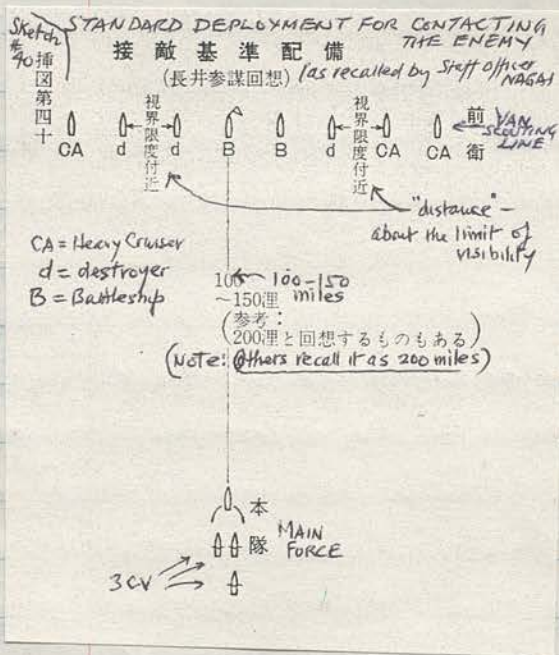 Sketch STANDARD DEPLOYMENT FOR CONTACTING
#40 THE ENEMY
挿図第四十
接敵基準配備
(長井参謀回想) (as recalled by Staff Officer
NAGAI
視界限度付近
視界限度付近
前衛
VAN
SCOUTING
LINE
CA d d B B d CA CA
"distance" –
about the limit of
visibility
CA = Heavy Cruiser
d = destroyer
B = Battleship
100 100–150
~150浬 miles
(参考:
200浬と回想するものもある)
(NOTE: Others recall it as 200 miles)
本隊
MAIN
FORCE
3 CV